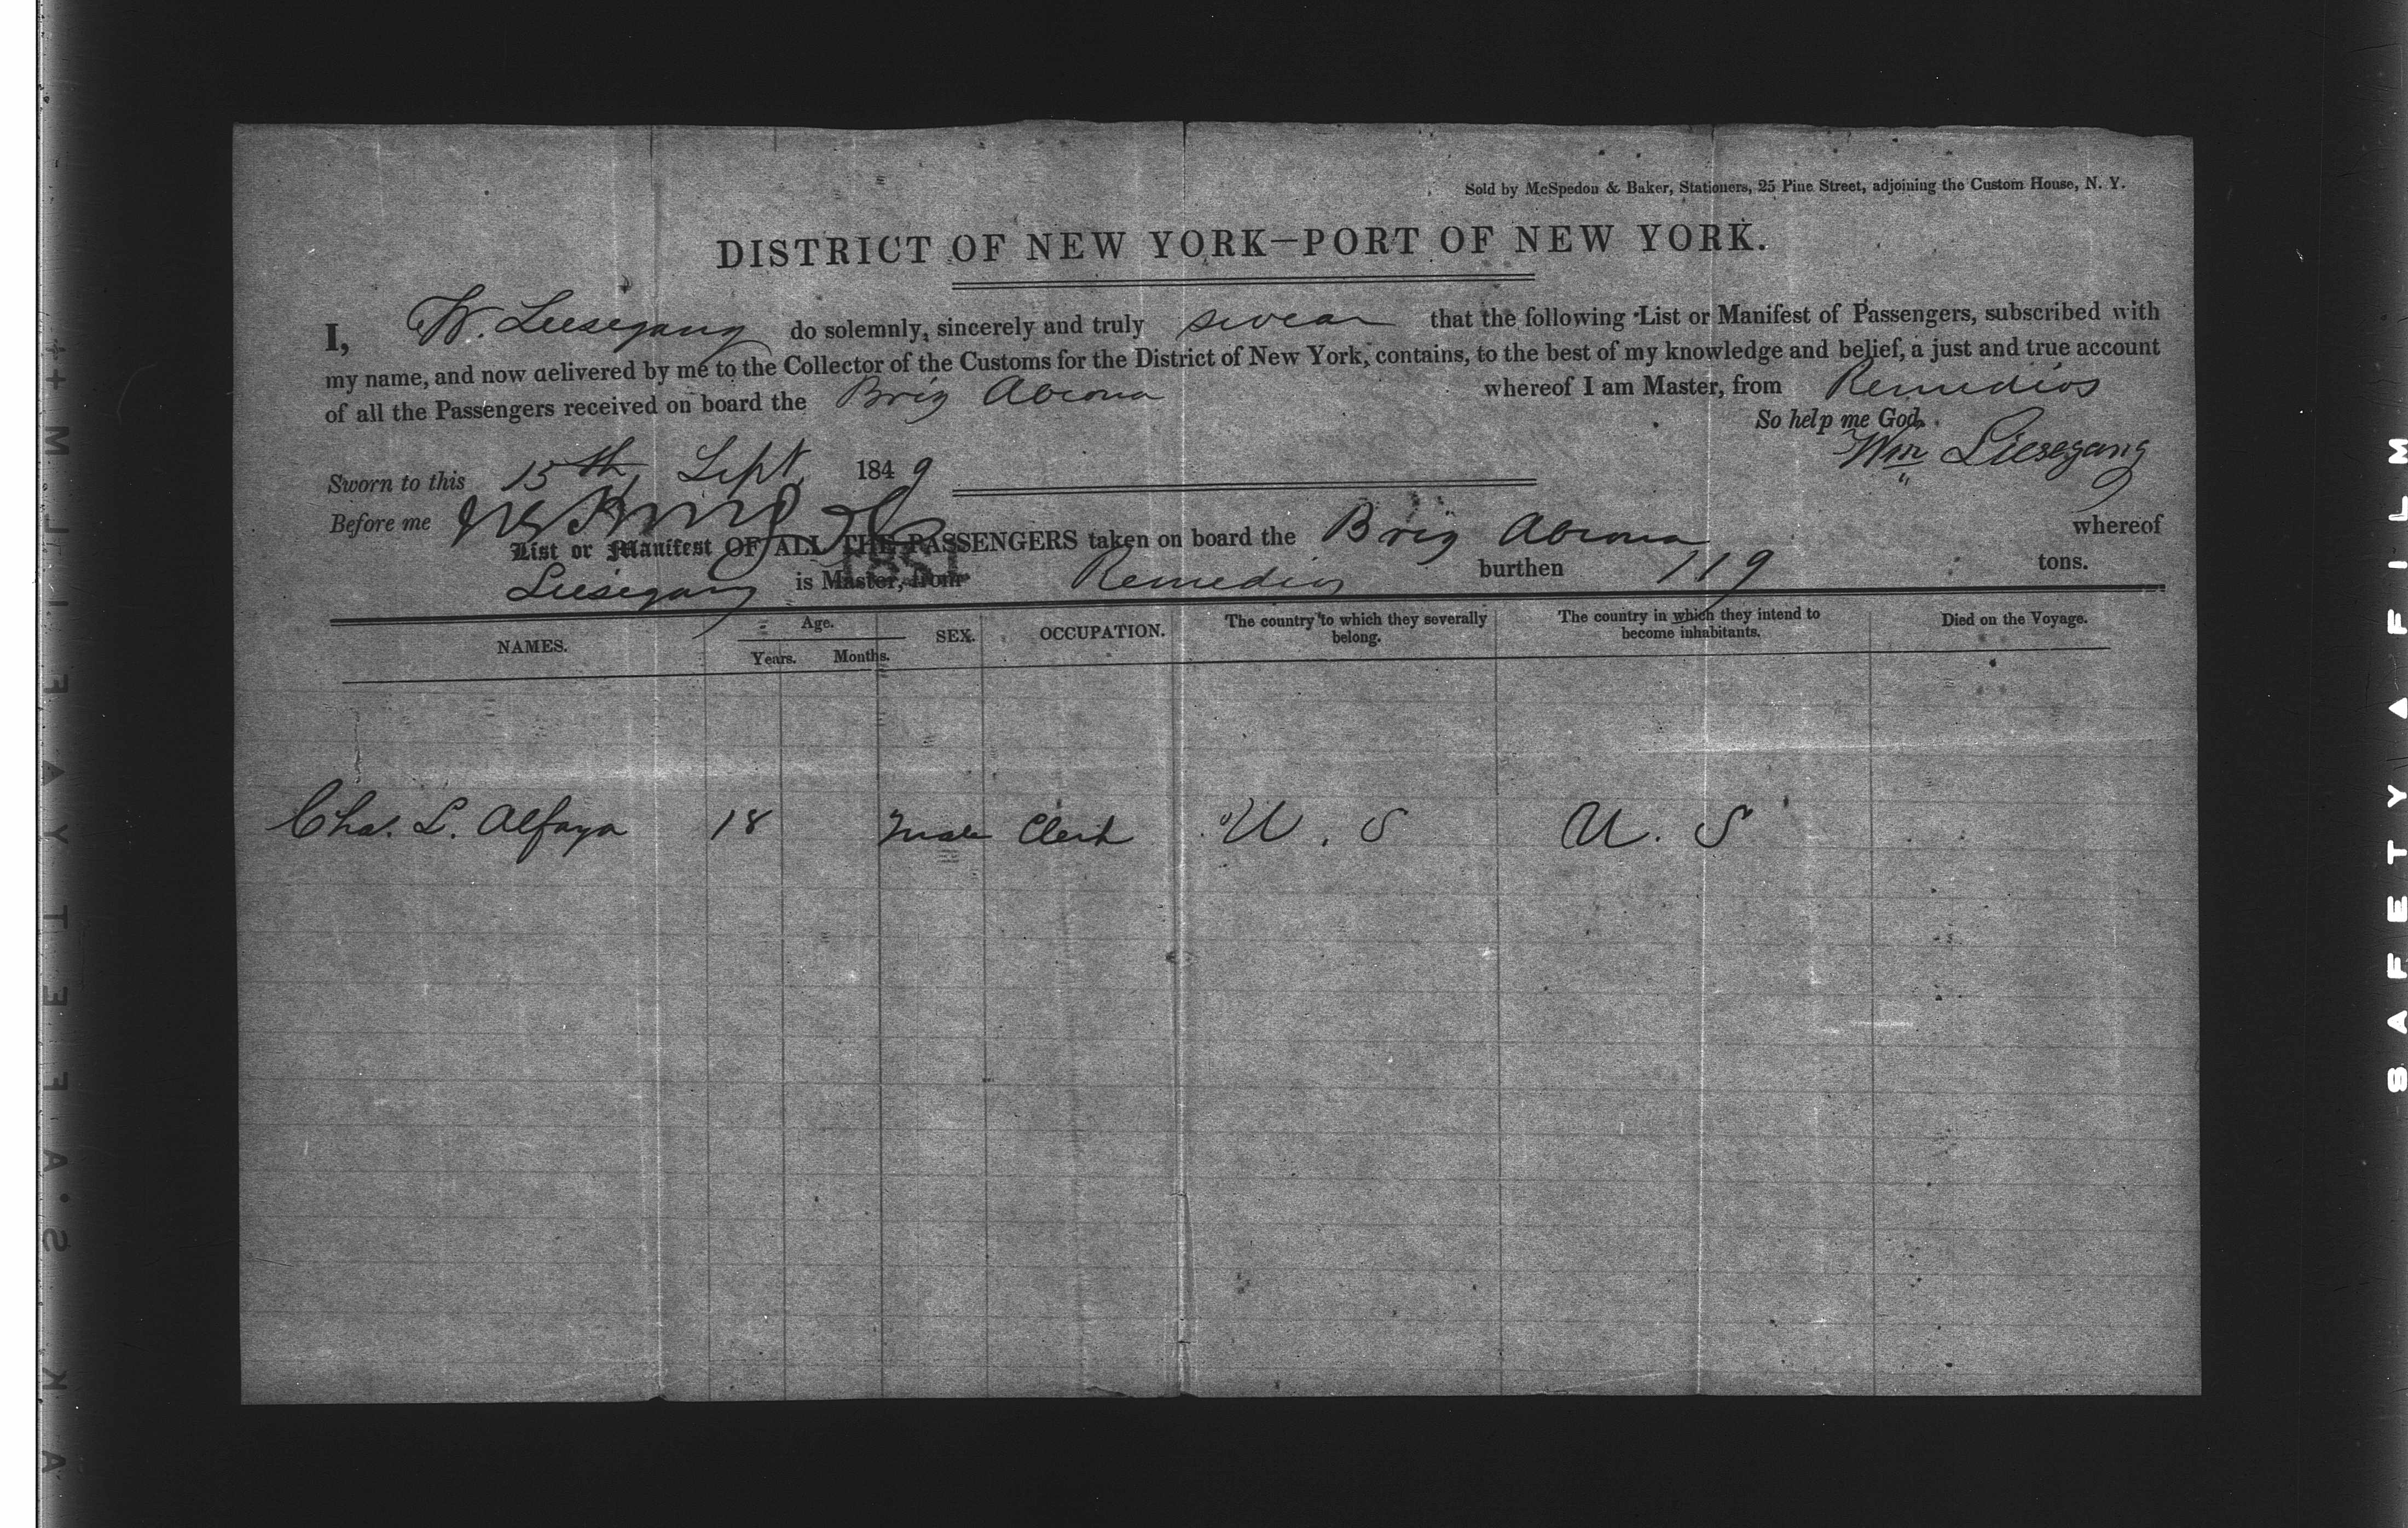 Sold by McSpedon & Baker, Stationers, 25 Pine Street, adjoining the Custom House, N. Y.
DISTRICT OF NEW YORK—PORT OF NEW YORK.
I, W. Liesegang do solemnly, sincerely and truly swear that the following List or Manifest of Passengers, subscribed with
my name, and now delivered by me to the Collector of the Customs for the District of New York, contains, to the best of my knowledge and belief, a just and true account
of all the Passengers received on board the Brig Abrona whereof I am Master, from Remedios
So help me God.
Wm Liesegang
Sworn to this 15th Sept 1849
Before me
List or Manifest OF ALL THE PASSENGERS taken on board the Brig Abrona whereof
Liesegang is Master, from Remedios burthen 119 tons.
NAMES. Age. Years. Months. SEX. OCCUPATION. The country to which they severally belong. The country in which they intend to become inhabitants. Died on the Voyage.
Chas. L. Alfaya 18 Male Clerk U. S U. S
SAFETY FILM